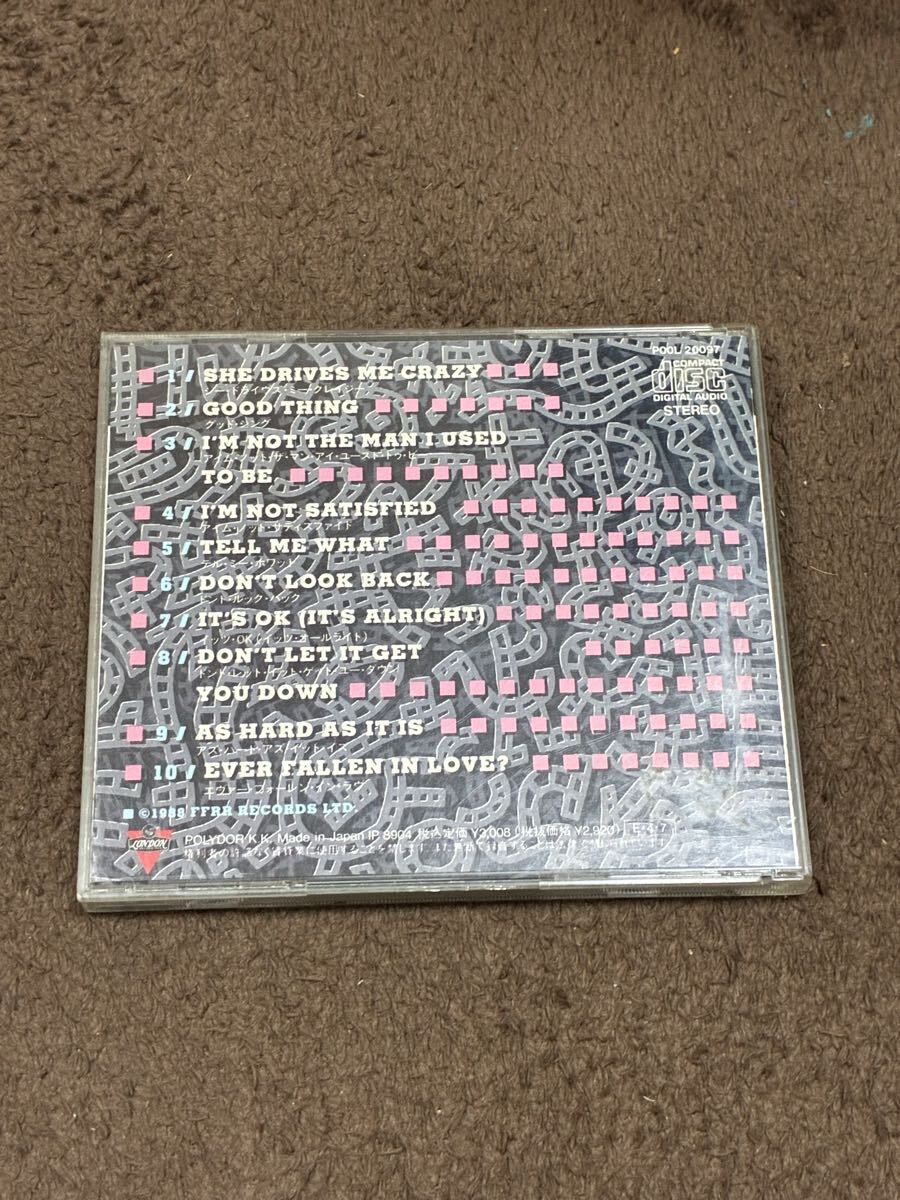 P00L 20097
COMPACT
disc
DIGITAL AUDIO
STEREO
1/ SHE DRIVES ME CRAZY
シー・ドライヴズ・ミー・クレイジー
2/ GOOD THING
グッド・シング
3/ I'M NOT THE MAN I USED
アイム・ノット・ザ・マン・アイ・ユースド・トゥ・ビー
TO BE
4/ I'M NOT SATISFIED
アイム・ノット・サティスファイド
5/ TELL ME WHAT
テル・ミー・ホワット
6/ DON'T LOOK BACK
ドント・ルック・バック
7/ IT'S OK (IT'S ALRIGHT)
イッツ・OK(イッツ・オールライト)
8/ DON'T LET IT GET
ドント・レット・イット・ゲット・ユー・ダウン
YOU DOWN
9/ AS HARD AS IT IS
アズ・ハード・アズ・イット・イズ
10/ EVER FALLEN IN LOVE?
エヴァー・フォーレン・イン・ラヴ
©1988 FFRR RECORDS LTD.
LONDON
POLYDOR K.K. Made in Japan IP 8904 税込定価 ¥3,008 (税抜価格 ¥2,920) E・4・7
権利者の許諾なく賃貸業に使用することを禁じます また無断で録音することは法律で